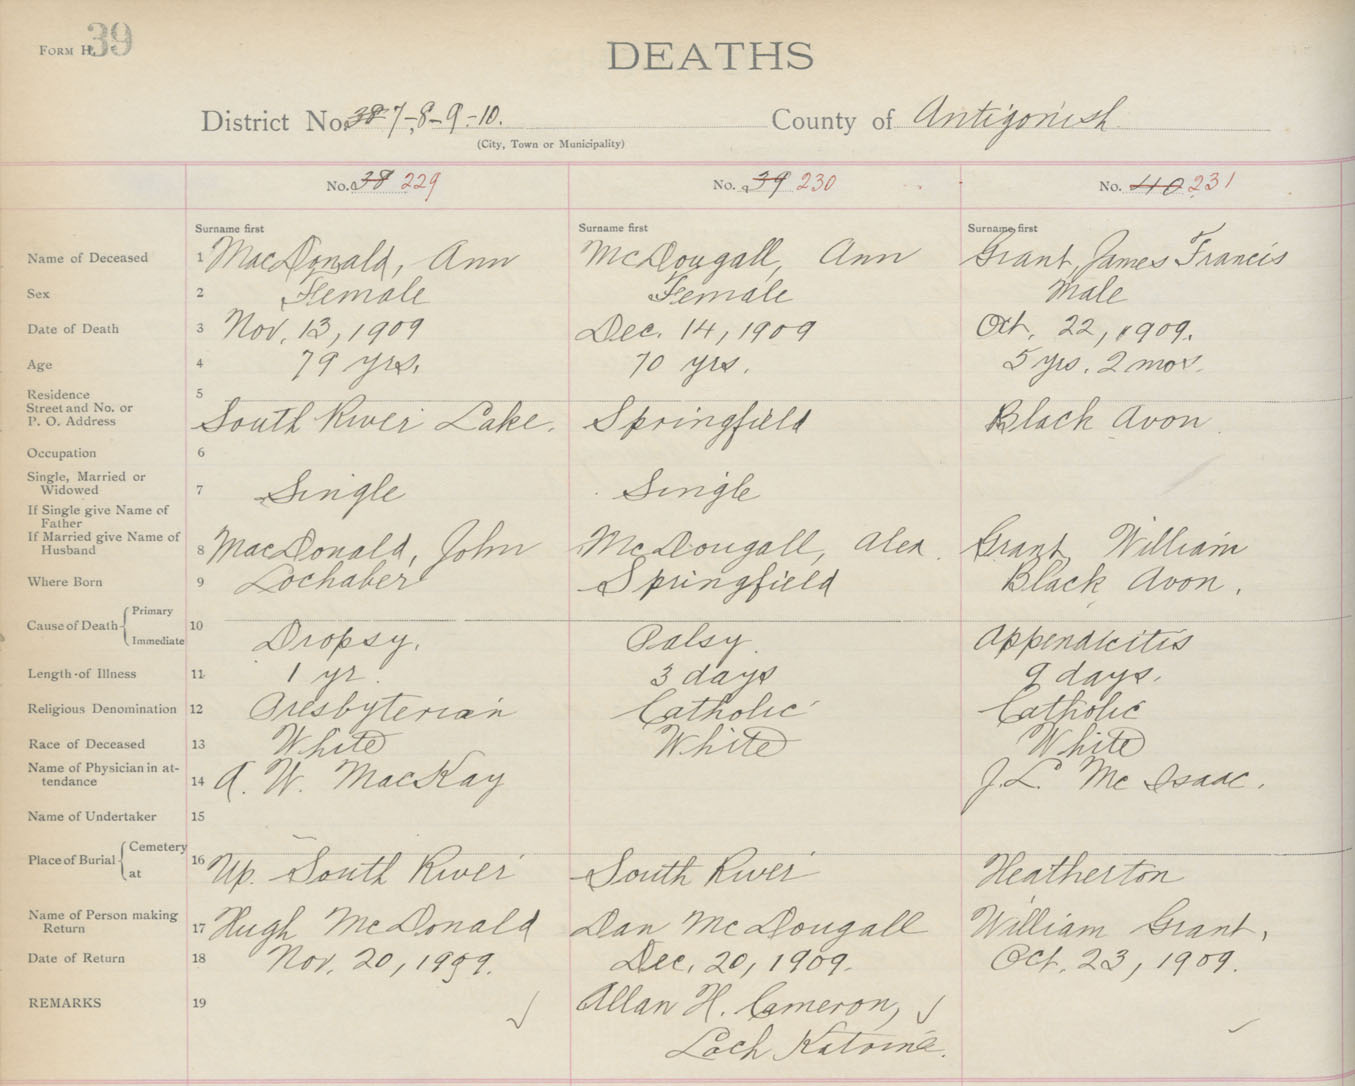 FORM H. 39
DEATHS
District No. 38 7-8-9-10. County of Antigonish
(City, Town or Municipality)
No. 38 229 No. 39 230 No. 40 231
Surname first Surname first Surname first
Name of Deceased 1 MacDonald, Ann McDougall, Ann Grant, James Francis
Sex 2 Female Female Male
Date of Death 3 Nov. 13, 1909 Dec. 14, 1909 Oct. 22, 1909.
Age 4 79 yrs. 70 yrs. 5 yrs. 2 mos.
Residence 5
Street and No. or
P. O. Address South River Lake. Springfield Black Avon
Occupation 6
Single, Married or
Widowed 7 Single Single
If Single give Name of
Father
If Married give Name of
Husband 8 MacDonald, John McDougall, Alex. Grant, William
Where Born 9 Lochaber Springfield Black Avon.
Cause of Death { Primary
Immediate 10 Dropsy. Palsy. Appendicitis
Length of Illness 11 1 yr. 3 days 9 days.
Religious Denomination 12 Presbyterian Catholic Catholic
Race of Deceased 13 White White White
Name of Physician in at-
tendance 14 A. W. MacKay J. L. McIsaac.
Name of Undertaker 15
Place of Burial { Cemetery
at 16 Up. South River South River Heatherton
Name of Person making
Return 17 Hugh McDonald Dan McDougall William Grant.
Date of Return 18 Nov. 20, 1909. Dec. 20, 1909. Oct. 23, 1909.
REMARKS 19 Allan H. Cameron,
Loch Katrine.